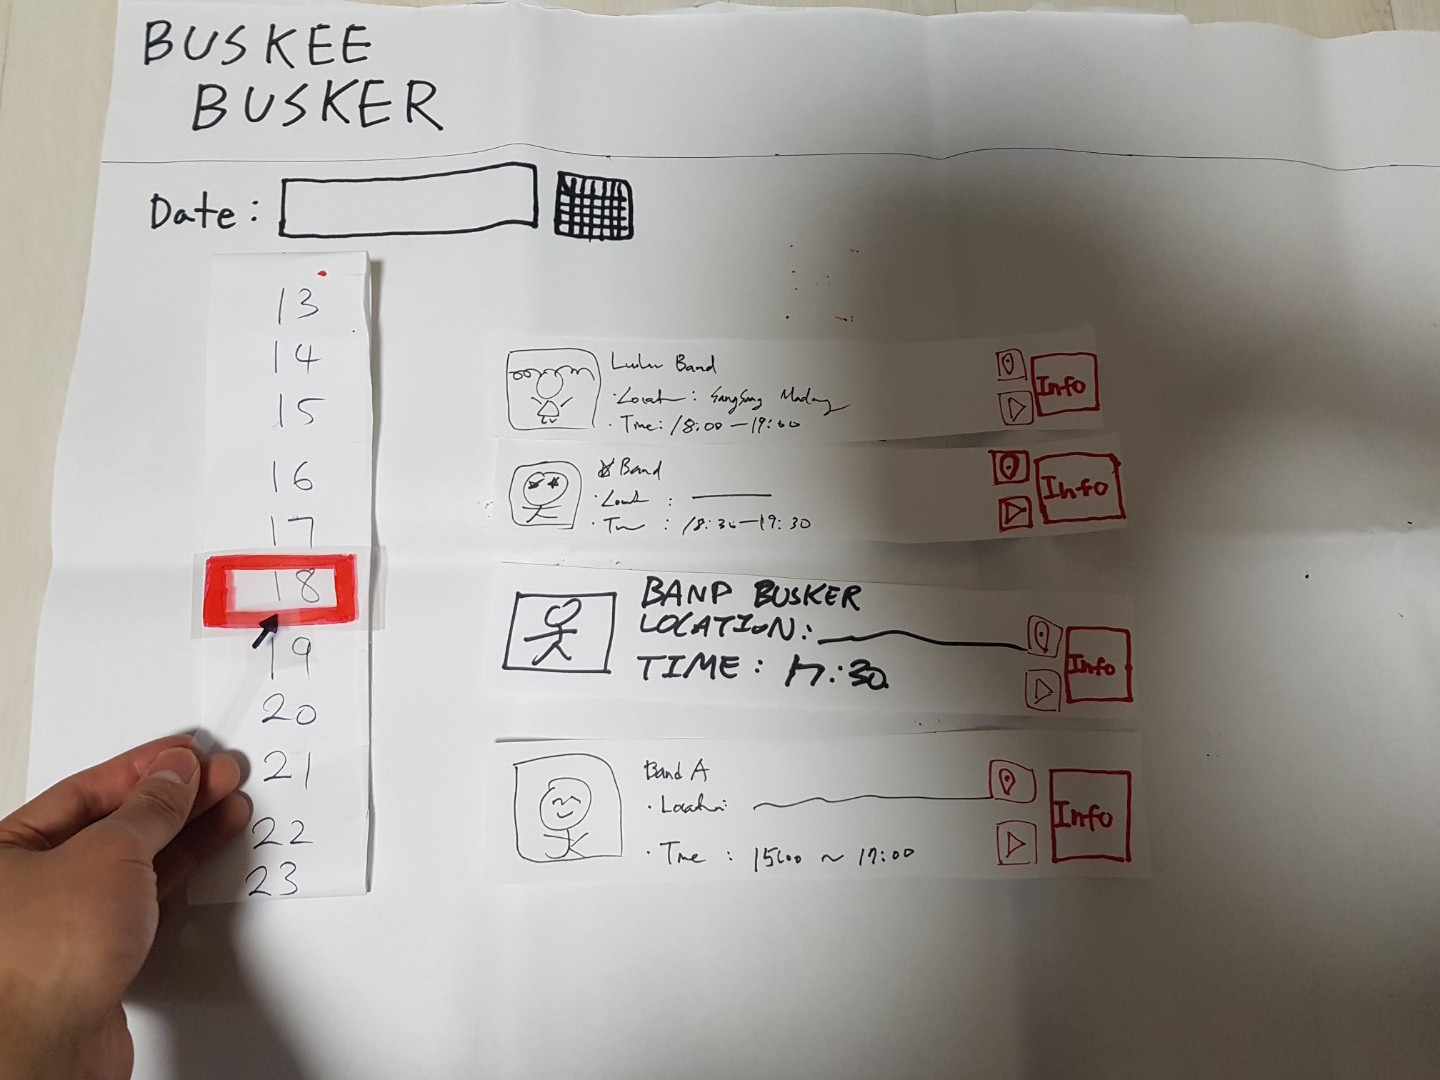 BUSKEE
BUSKER
Date:
13
14
15
16
17
18
19
20
21
22
23
Lulu Band
· : SangSang
· Time: 18:00-19:00
Info
Band
· :
· : 18:30-19:30
Info
BAND BUSKER
LOCATION:
TIME: 17:30
Info
Band A
· Location:
· Time : 15:00 ~ 17:00
Info